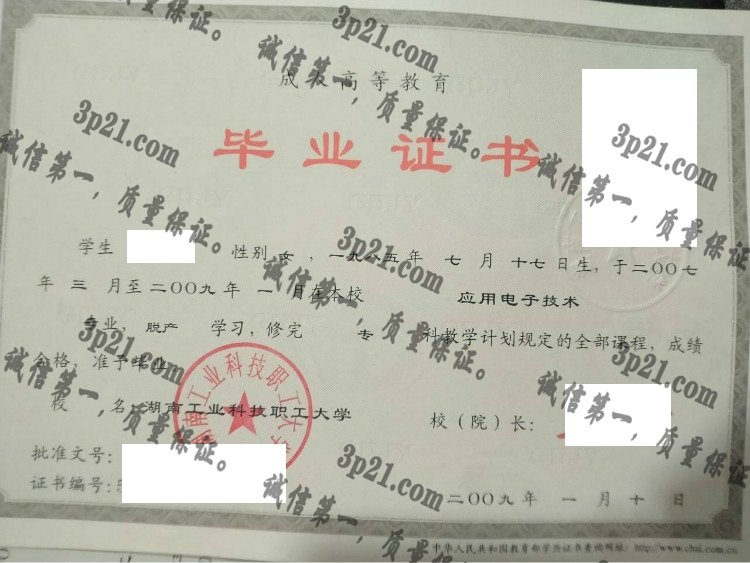 成人高等教育
毕业证书
学生 性别 女，一九八五年 七 月 十七日生，于二〇〇七
年 三 月至二〇〇九年 一 月在本校 应用电子技术
专业， 脱产 学习，修完 专 科教学计划规定的全部课程，成绩
合格，准予毕业
校 名：湖南工业科技职工大学
校（院）长：
批准文号：
证书编号：
二〇〇九年 一 月 十 日
中华人民共和国教育部学历证书查询网址：http://www.chsi.com.cn
湖南工业科技职工大学
3p21.com
诚信第一，质量保证。
3p21.com
诚信第一，质量保证。
3p21.com
诚信第一，质量保证。
3p21.com
诚信第一，质量保证。
3p21.com
诚信第一，质量保证。
3p21.com
诚信第一，质量保证。
3p21.com
诚信第一，质量保证。